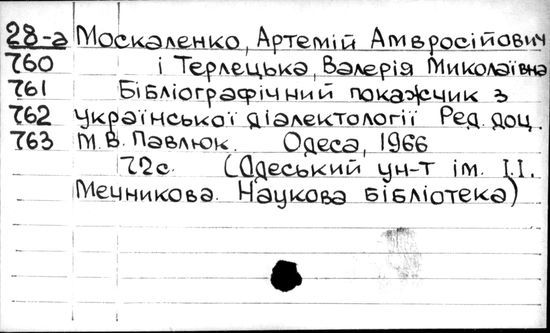 28-а Москаленко, Артемій Амвросійович
760 і Терлецька, Валерія Миколаївна
761 Бібліографічний покажчик з
762 української діалектології Ред. доц.
763 М.В. Павлюк. Одеса, 1966
72с. (Одеський ун-т ім. І.І.
Мечникова. Наукова бібліотека)